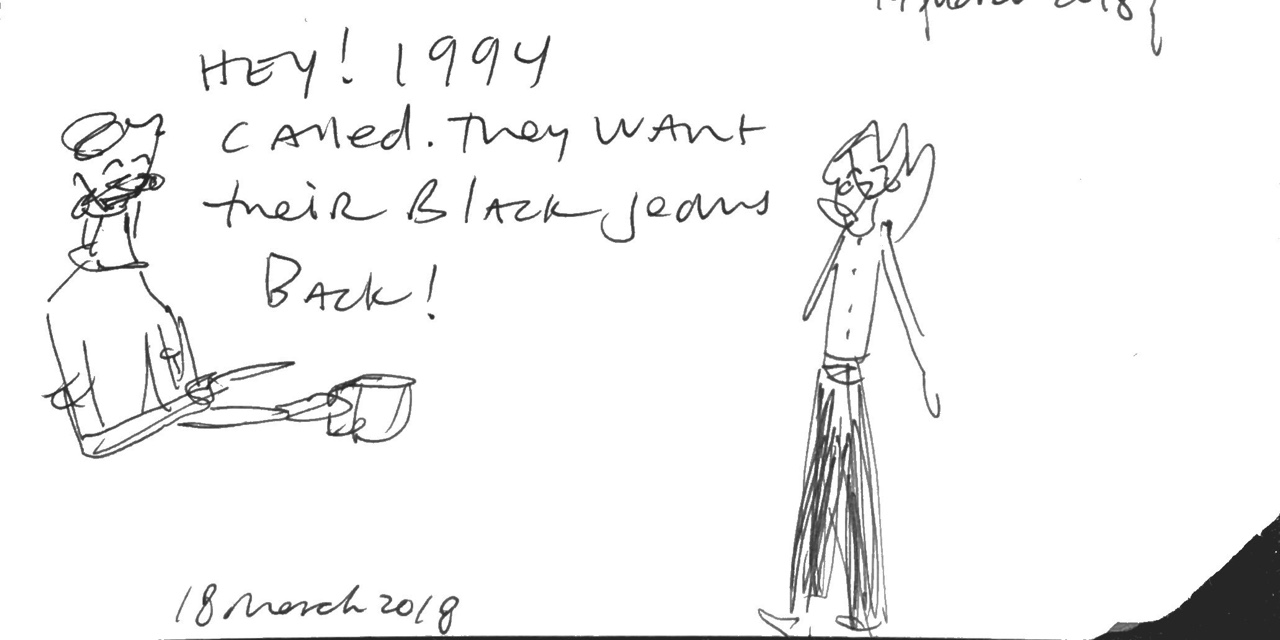 HEY! 1994
CAlled. They WANt
theiR BlACk jeans
BACk!
18 March 2018